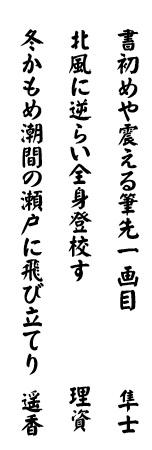 書初めや震える筆先一画目　隼士
北風に逆らい全身登校す　理資
冬かもめ潮間の瀬戸に飛び立てり　遥香